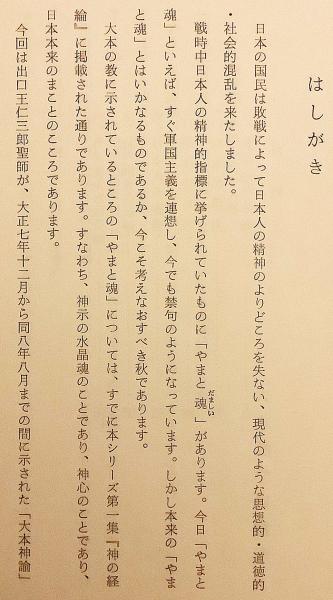 はしがき
日本の国民は敗戦によって日本人の精神のよりどころを失ない、現代のような思想的・道徳的
・社会的混乱を来たしました。
戦時中日本人の精神的指標に挙げられていたものに「やまと魂」があります。今日「やまと
だましい
魂」といえば、すぐ軍国主義を連想し、今でも禁句のようになっています。しかし本来の「やま
と魂」とはいかなるものであるか、今こそ考えなおすべき秋であります。
大本の教に示されているところの「やまと魂」については、すでに本シリーズ第一集『神の経
綸』に掲載された通りであります。すなわち、神示の水晶魂のことであり、神心のことであり、
日本本来のまことのこころであります。
今回は出口王仁三郎聖師が、大正七年十二月から同八年八月までの間に示された「大本神諭」